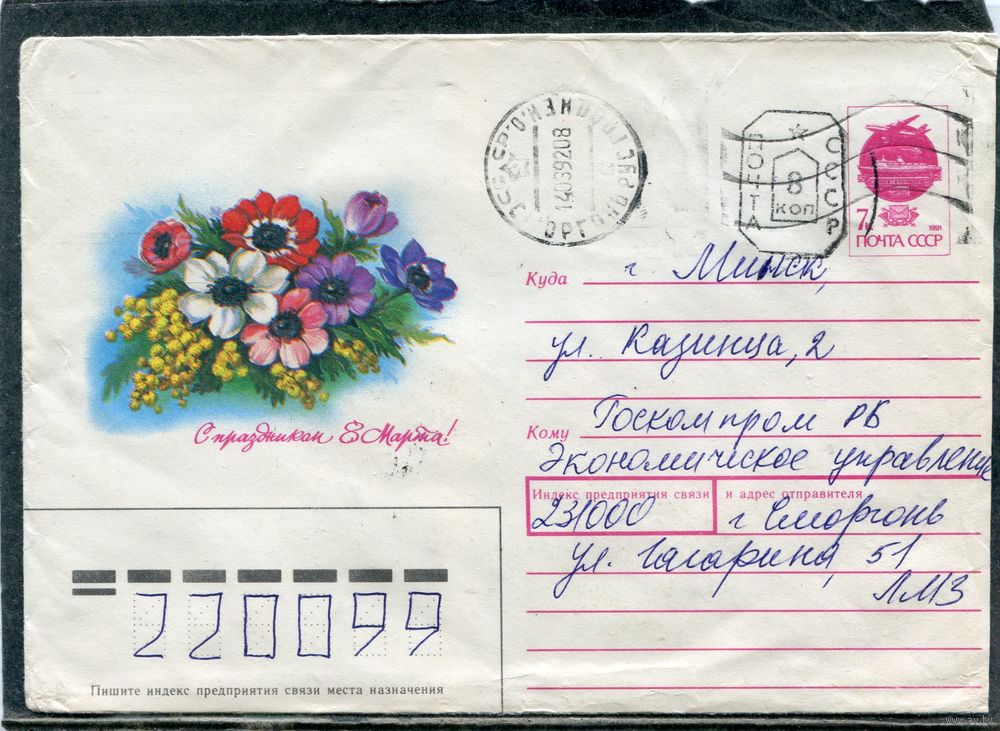 14039208
ПОЧТА
СССР
8
коп
7к
1991
ПОЧТА СССР
Куда г. Минск,
ул. Казинца, 2
Кому Госкомпром РБ
Экономическое управление
Индекс предприятия связи и адрес отправителя
231000 г Сморгонь
ул. Гагарина, 51
ЛМЗ
С праздником 8 Марта!
220099
Пишите индекс предприятия связи места назначения